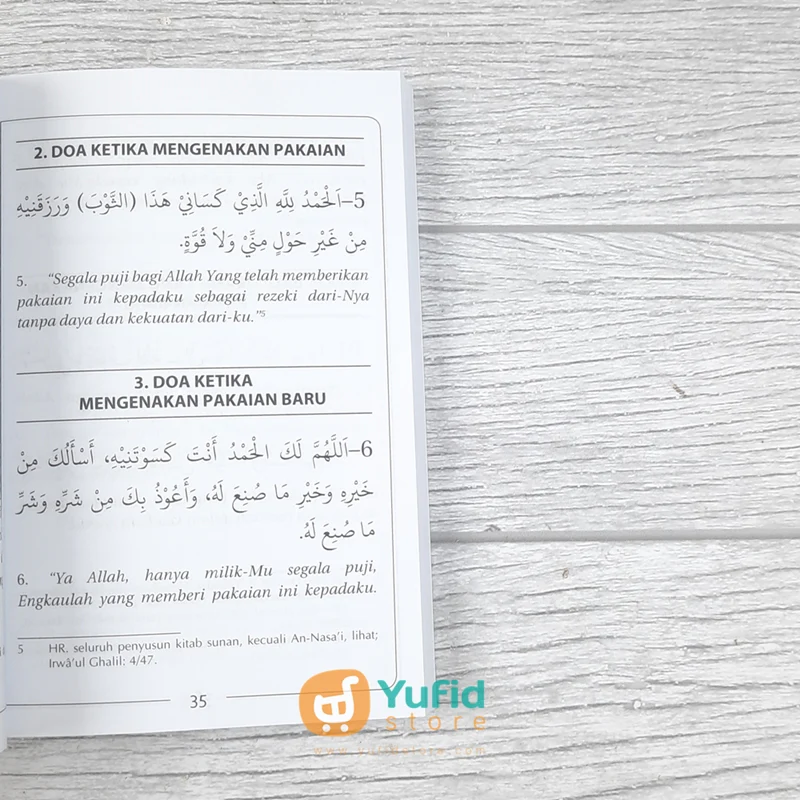 2. DOA KETIKA MENGENAKAN PAKAIAN
5–اَلْحَمْدُ لِلَّهِ الَّذِيْ كَسَانِيْ هَذَا (الثَّوْبَ) وَرَزَقَنِيْهِ
مِنْ غَيْرِ حَوْلٍ مِنِّيْ وَلاَ قُوَّةٍ.
5. "Segala puji bagi Allah Yang telah memberikan
pakaian ini kepadaku sebagai rezeki dari-Nya
tanpa daya dan kekuatan dari-ku."5
3. DOA KETIKA
MENGENAKAN PAKAIAN BARU
6–اَللَّهُمَّ لَكَ الْحَمْدُ أَنْتَ كَسَوْتَنِيْهِ، أَسْأَلُكَ مِنْ
خَيْرِهِ وَخَيْرِ مَا صُنِعَ لَهُ، وَأَعُوْذُ بِكَ مِنْ شَرِّهِ وَشَرِّ
مَا صُنِعَ لَهُ.
6. "Ya Allah, hanya milik-Mu segala puji,
Engkaulah yang memberi pakaian ini kepadaku.
5 HR. seluruh penyusun kitab sunan, kecuali An-Nasa'i, lihat;
Irwâ'ul Ghalil: 4/47.
35
Yufid
store
www.yufidstore.com